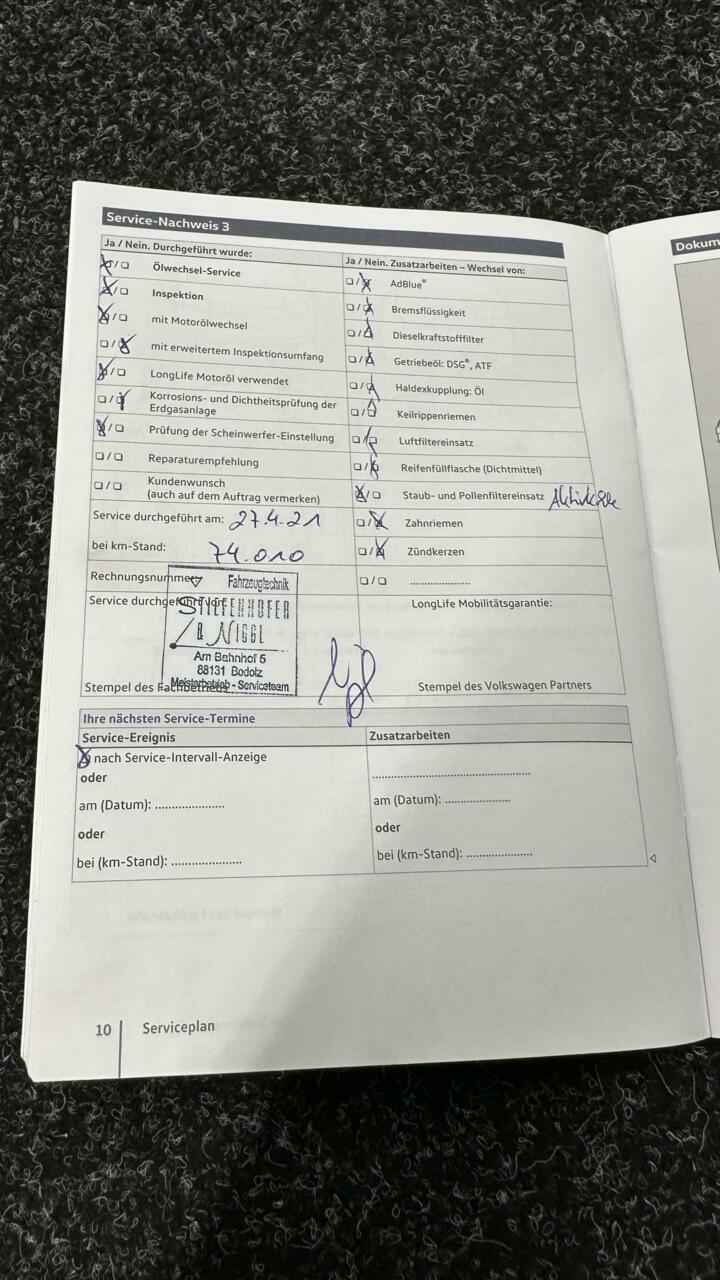 Service-Nachweis 3
Ja / Nein. Durchgeführt wurde:
Ölwechsel-Service
Inspektion
mit Motorölwechsel
mit erweitertem Inspektionsumfang
LongLife Motoröl verwendet
Korrosions- und Dichtheitsprüfung der
Erdgasanlage
Prüfung der Scheinwerfer-Einstellung
Reparaturempfehlung
Kundenwunsch
(auch auf dem Auftrag vermerken)
Service durchgeführt am: 27.4.21
bei km-Stand: 74.010
Rechnungsnummer
Service durchgeführt von:
Fahrzeugtechnik
STIEFENHOFER
& NIGGL
Am Bahnhof 5
88131 Bodolz
Meisterbetrieb - Serviceteam
Stempel des Fachbetriebs
Ja / Nein. Zusatzarbeiten – Wechsel von:
AdBlue®
Bremsflüssigkeit
Dieselkraftstofffilter
Getriebeöl: DSG®, ATF
Haldexkupplung: Öl
Keilrippenriemen
Luftfiltereinsatz
Reifenfüllflasche (Dichtmittel)
Staub- und Pollenfiltereinsatz Aktivkohle
Zahnriemen
Zündkerzen
....................
LongLife Mobilitätsgarantie:
Stempel des Volkswagen Partners
Ihre nächsten Service-Termine
Service-Ereignis
nach Service-Intervall-Anzeige
oder
am (Datum): .....................
oder
bei (km-Stand): .....................
Zusatzarbeiten
................................................
am (Datum): ....................
oder
bei (km-Stand): ....................
10 Serviceplan
Dokum